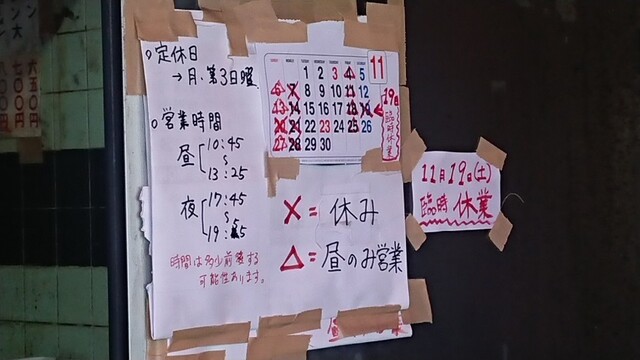 ○定休日
→月、第3日曜
○営業時間
昼 10:45
〜
13:25
夜 17:45
〜
19:45
時間は多少前後する
可能性あります。
11
1 2 3 4 5
6 7 8 9 10 11 12
13 14 15 16 17 18 19
20 21 22 23 24 25 26
27 28 29 30
19日
臨時休業
×=休み
△=昼のみ営業
11月19日(土)
臨時休業
六五〇円
七〇〇円
八〇〇円